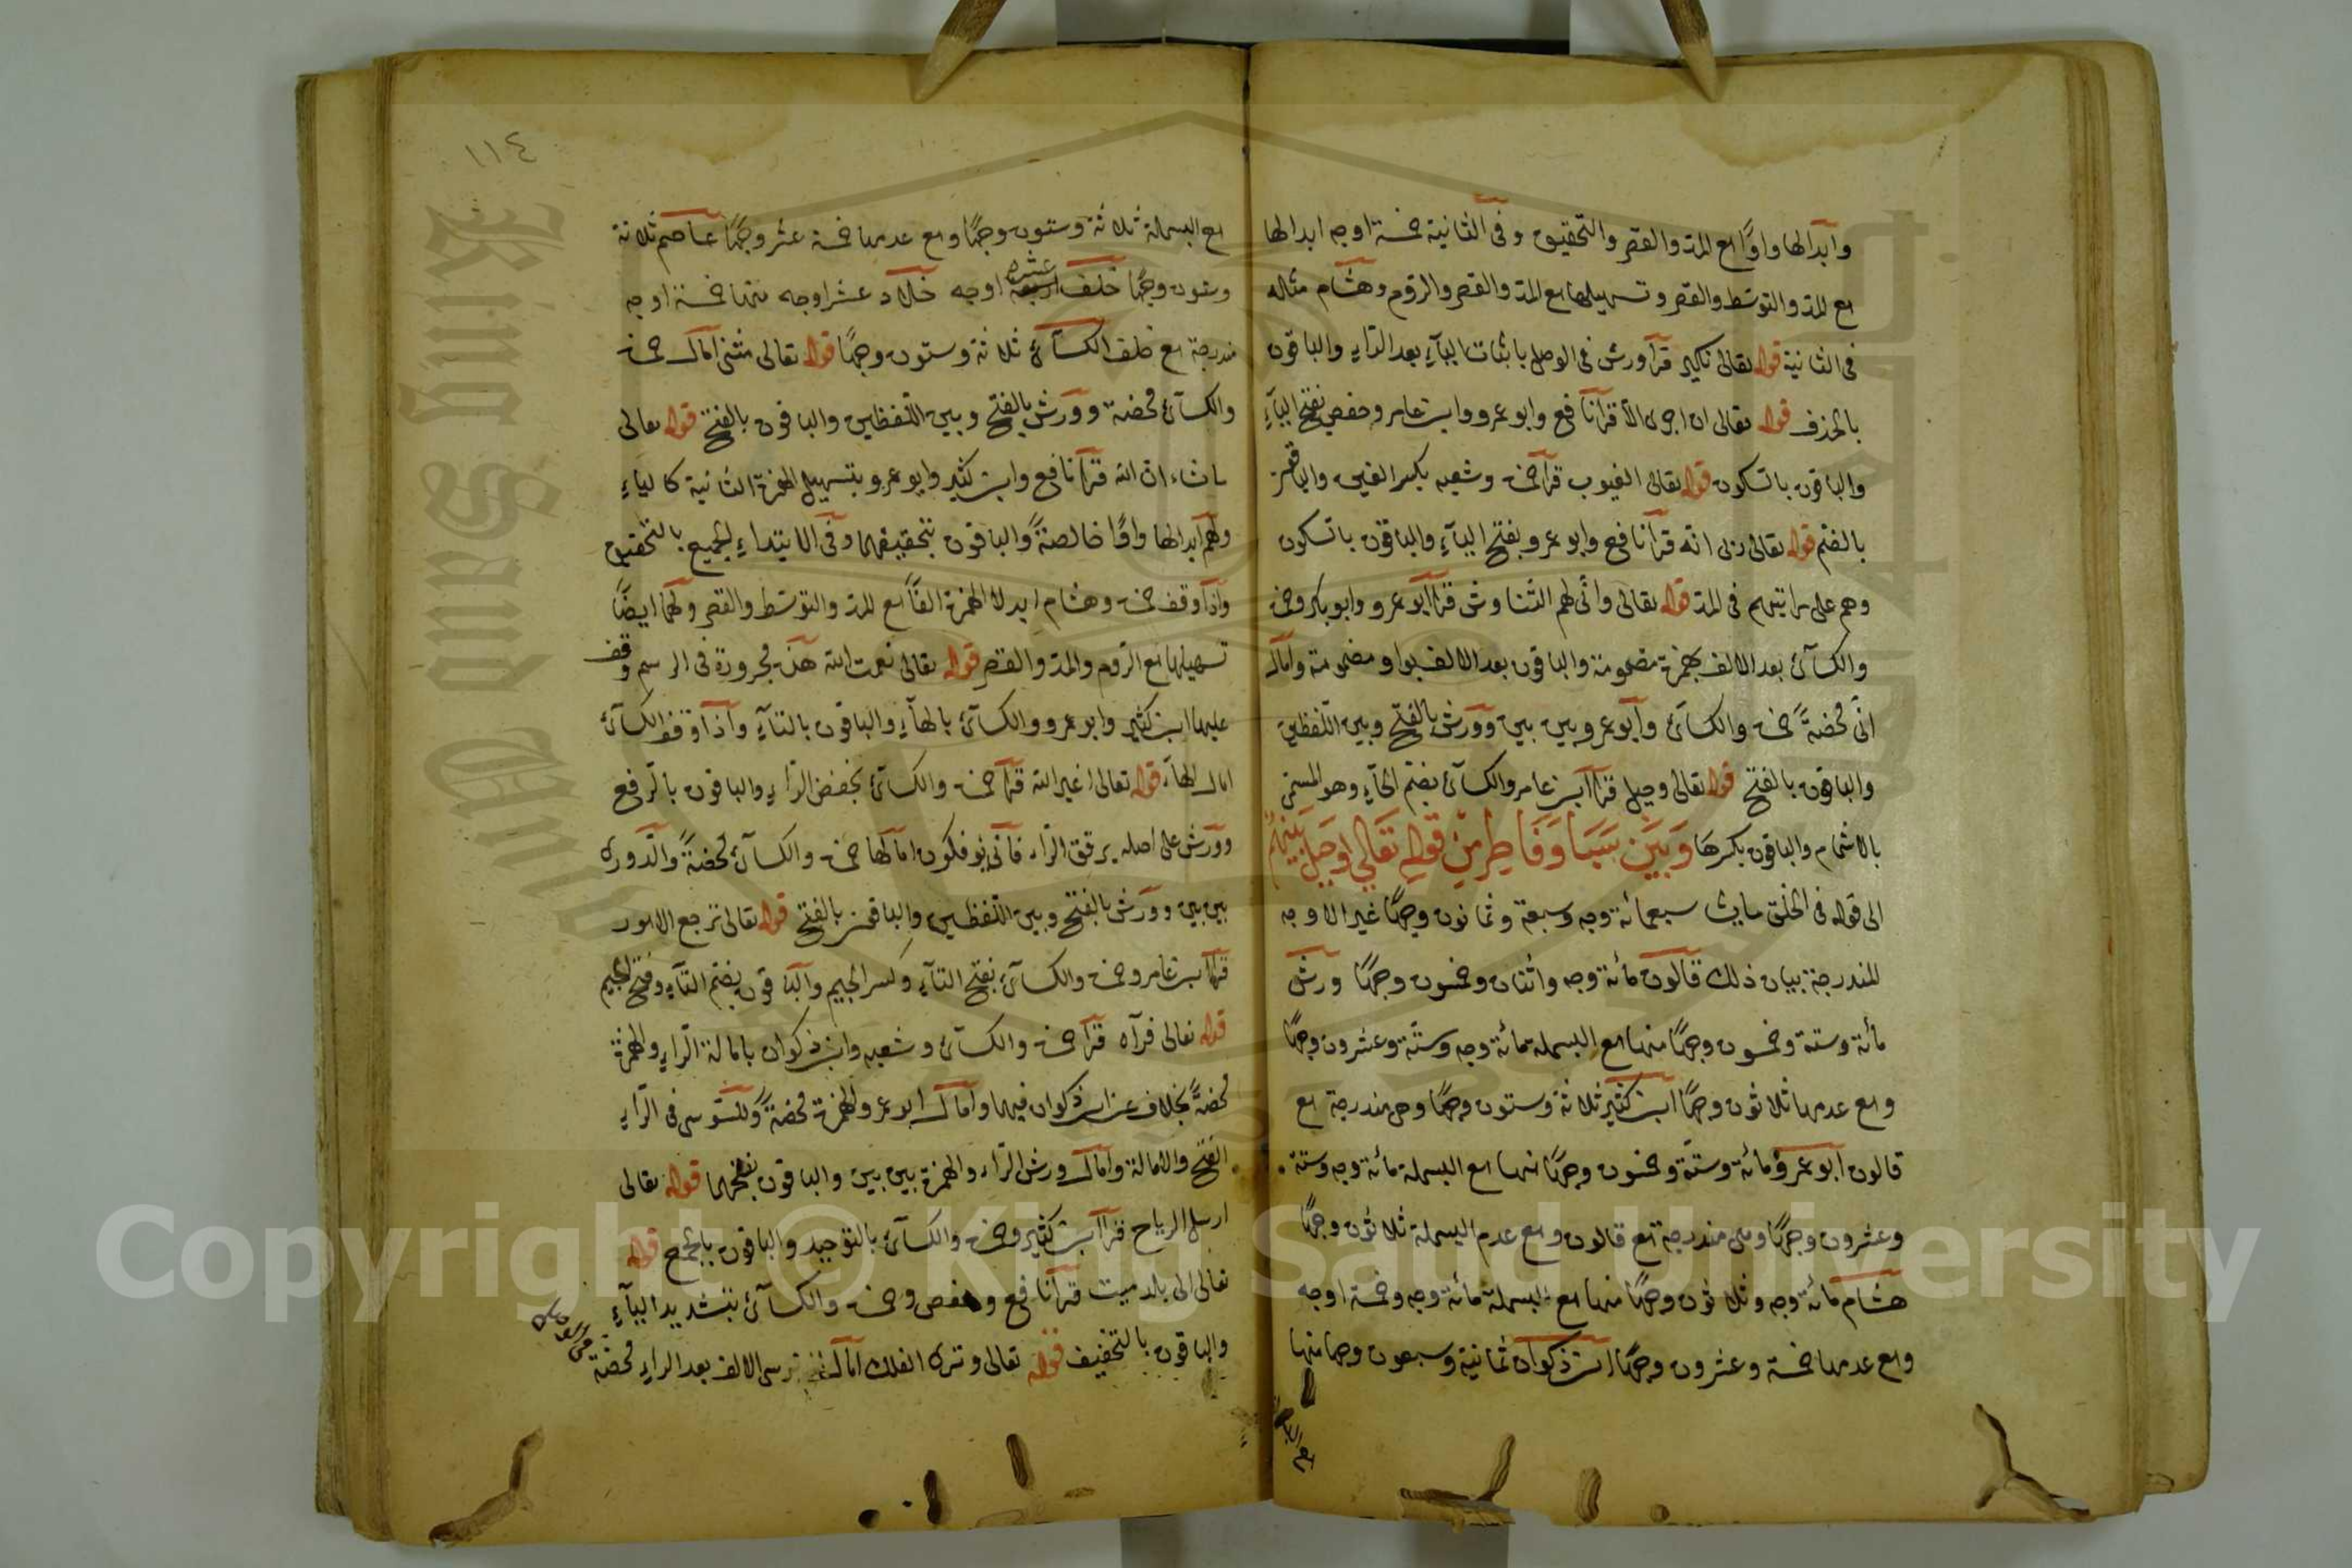 وابدالها واوًا مع المد والقصر والتحقيق وفى الثانية خمسة اوجه ابدالها
مع المد والتوسط والقصر وتسهيلها مع المد والقصر والروم وهشام مثاله
فى الثانية قوله تعالى نكير قرأ ورش فى الوصل باثبات الياء بعد الراء والباقون
بالحذف قوله تعالى ان اجرى الا قرأ نافع وابو عمرو وابن عامر وحفص بفتح الياء
والباقون بالسكون قوله تعالى الغيوب قرأ حمزة وشعبه بكسر الغين والباقون
بالضم قوله تعالى ربى انه قرأ نافع وابو عمرو بفتح الياء والباقون بالسكون
وهم على مراتبهم فى المد قوله تعالى وأنى لهم التناوش قرأ ابو عمرو وابو بكر وحمزة
والكسآئ بعد الالف بهمزة مضمومة والباقون بعد الالف بواو مضمومة وامال
انّى محضةً حمزة والكسآئ وابو عمرو بين بين وورش بالفتح وبين اللفظين
والباقون بالفتح قوله تعالى وحيل قرأ ابن عامر والكسآئ بضم الحآء وهو المسمى
بالاشمام والباقون بكسرها وَبَيَن سَبَا وَفَاطِر مِنْ قَولِه تَعَالي وَحِيلَ بَينهُم
الى قوله فى الخلق ما يشا سبعمائة وجه وسبعة وثمانون وجهًا غير الاوجه
المندرجة بيان ذلك قالون مائة وجه واثنان وخمسون وجهًا ورش
مأئة وستة وخمسون وجهًا منها مع البسملة مائة وجه وستة وعشرون وجهًا
ومع عدمها ثلاثون وجهًا ابن كثير ثلاثة وستون وجهًا وهى مندرجة مع
قالون ابو عمرو مائة وستة وخمسون وجهًا منها مع البسملة مائة وجه وستة
وعشرون وجهًا وهى مندرجة مع قالون ومع عدم البسملة ثلاثون وجهًا
هشام مائة وجه وثلاثون وجهًا منها مع البسملة مائة وجه وخمسة اوجه
ومع عدمها خمسة وعشرون وجهًا ابن ذكوان ثمانية وسبعون وجها منها
مع البسملة
١١٤
مع البسملة ثلاثة وستون وجهًا ومع عدمها خمسة عشر وجهًا عاصم ثلاثة
وستون وجهًا خلف عشرة اوجه خلاد عشر اوجه منها خمسة اوجه
مندرجة مع خلف الكسآئ ثلاثة وستون وجهًا قوله تعالى مثنى امال حمزة
والكسآئ محضة وورش بالفتح وبين اللفظين والباقون بالفتح قوله تعالى
ما شاء ان الله قرأ نافع وابن كثير وابو عمرو بتسهيل الهمزة الثانية كالياء
ولهم ابدالها واوًا خالصةً والباقون بتحقيقهما وفى الابتداء الجميع بالتحقيق
واذا وقف حمزة وهشام ابدلا الهمزة الفًا مع المد والتوسط والقصر ولهما ايضًا
تسهيلها مع الروم والمد والقصر قوله تعالى نعمت الله هذه مجرورة فى الرسم وقف
عليها ابن كثير وابو عمرو والكسآئ بالهآء والباقون بالتآء واذا وقف الكسآئ
امال الهآء قوله تعالى اغير الله قرأ حمزة والكسآئ بخفض الرآء والباقون بالرفع
وورش على اصله يرقق الراء فأنى تؤفكون امالها حمزة والكسآئ محضةً والدورى
بين بين وورش بالفتح وبين اللفظين والباقون بالفتح قوله تعالى ترجع الامور
قرأ ابن عامر وحمزة والكسآئ بفتح التآء وكسر الجيم والباقون بضم التآء وفتح الجيم
قوله تعالى فرآه قرأ حمزة والكسآئ وشعبه وابن ذكوان بامالة الرآء والهمزة
محضةً بخلاف عن ابن ذكوان فيهما وامال ابو عمرو الهمزة محضةً وللسوسى فى الرآء
الفتح والامالة وامال ورش الرآء والهمزة بين بين والباقون بفتحهما قوله تعالى
ارسل الرياح قرأ ابن كثير وحمزة والكسآئ بالتوحيد والباقون بالجمع قوله
تعالى الى بلد ميت قرأ نافع وحفص وحمزة والكسآئ بتشديد اليآء
والباقون بالتخفيف قوله تعالى وترى الفلك امال السوسى الالف بعد الراء محضة
Copyright © King Saud University
King Saud Univ